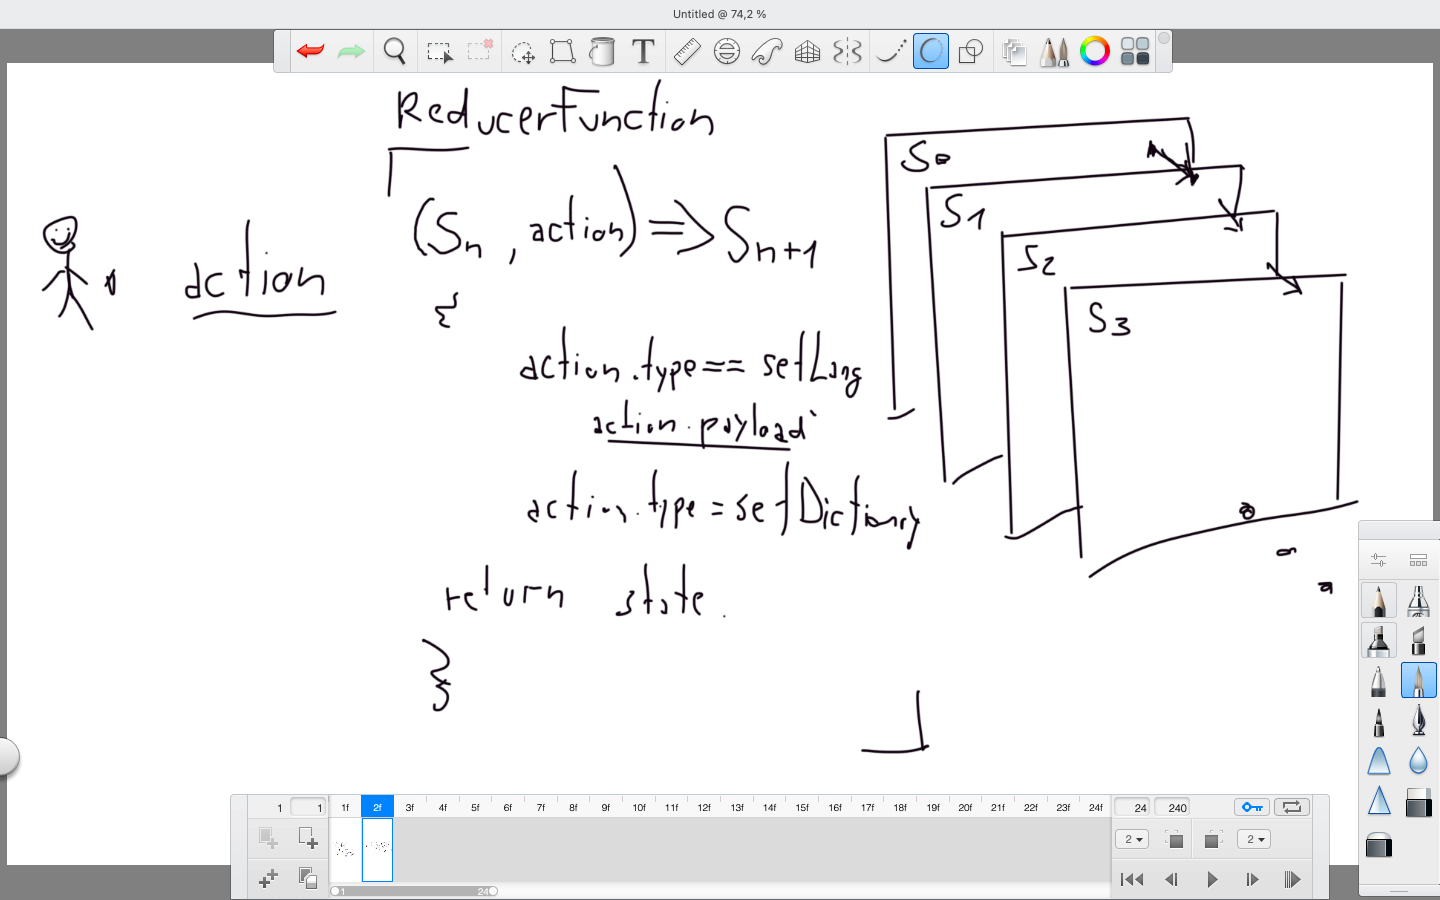 Untitled @ 74,2 %
ReducerFunction
(Sn, action) => Sn+1
action
{
action.type == setLang
action.payload
action.type = setDictionary
return state.
}
S0
S1
S2
S3
1 1 1f 2f 3f 4f 5f 6f 7f 8f 9f 10f 11f 12f 13f 14f 15f 16f 17f 18f 19f 20f 21f 22f 23f 24f 24 240
2 2
1 24